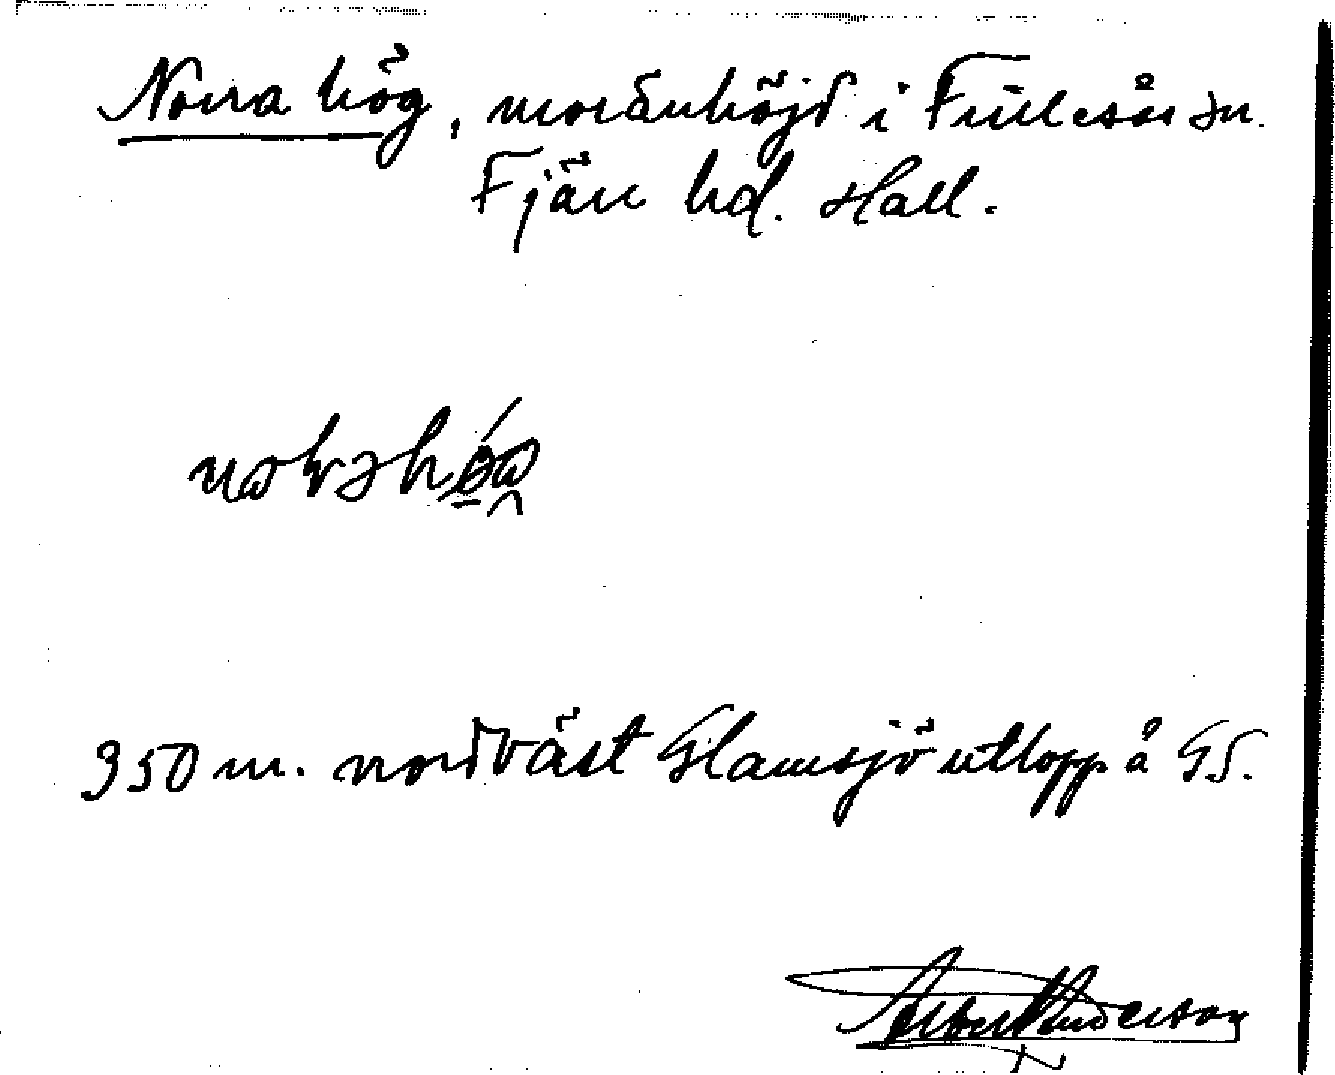 Norra hög, moränhöjd i Fjärås sn.
Fjäre hd. Hall.
350 m. nordväst Glamsjö utlopp å GS.
Albert Anderson